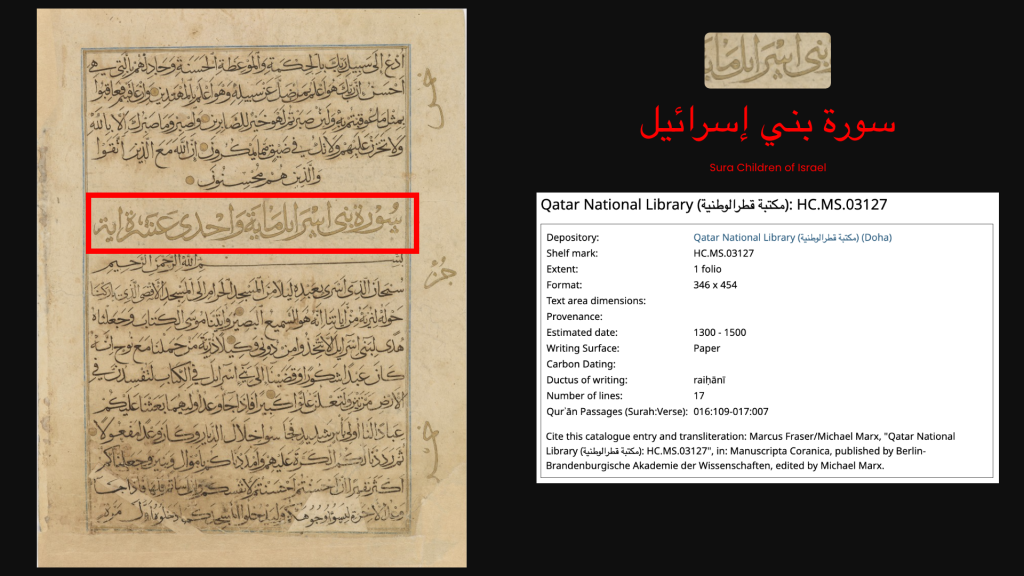 ادع الى سبيل ربك بالحكمة والموعظة الحسنة وجادلهم بالتي هي
احسن ان ربك هو اعلم بمن ضل عن سبيله وهو اعلم بالمهتدين وان عاقبتم فعاقبوا
بمثل ما عوقبتم به ولئن صبرتم لهو خير للصابرين واصبر وما صبرك الا بالله
ولا تحزن عليهم ولا تك في ضيق مما يمكرون ان الله مع الذين اتقوا
والذين هم محسنون
سورة بني اسرايل ماية واحدى عشرة اية
بسم الله الرحمن الرحيم
سبحان الذي اسرى بعبده ليلا من المسجد الحرام الى المسجد الاقصى الذي باركنا
حوله لنريه من اياتنا انه هو السميع البصير واتينا موسى الكتاب وجعلناه
هدى لبني اسرايل الا تتخذوا من دوني وكيلا ذرية من حملنا مع نوح انه
كان عبدا شكورا وقضينا الى بني اسرايل في الكتاب لتفسدن في
الارض مرتين ولتعلن علوا كبيرا فاذا جا وعد اوليهما بعثنا عليكم
عبادا لنا اولي باس شديد فجاسوا خلال الديار وكان وعدا مفعولا
ثم رددنا لكم الكرة عليهم وامددناكم باموال وبنين وجعلناكم
اكثر نفيرا ان احسنتم احسنتم لانفسكم وان اساتم فلها فاذا جا
وعد الاخرة ليسوءوا وجوهكم وليدخلوا المسجد كما دخلوه اول مرة
بني اسرايل ماية
سورة بني إسرائيل
Sura Children of Israel
Qatar National Library (مكتبة قطرالوطنية): HC.MS.03127
Depository: Qatar National Library (مكتبة قطرالوطنية) (Doha)
Shelf mark: HC.MS.03127
Extent: 1 folio
Format: 346 x 454
Text area dimensions:
Provenance:
Estimated date: 1300 - 1500
Writing Surface: Paper
Carbon Dating:
Ductus of writing: raiḥānī
Number of lines: 17
Qurʾān Passages (Surah:Verse): 016:109-017:007
Cite this catalogue entry and transliteration: Marcus Fraser/Michael Marx, "Qatar National
Library (مكتبة قطرالوطنية): HC.MS.03127", in: Manuscripta Coranica, published by Berlin-
Brandenburgische Akademie der Wissenschaften, edited by Michael Marx.